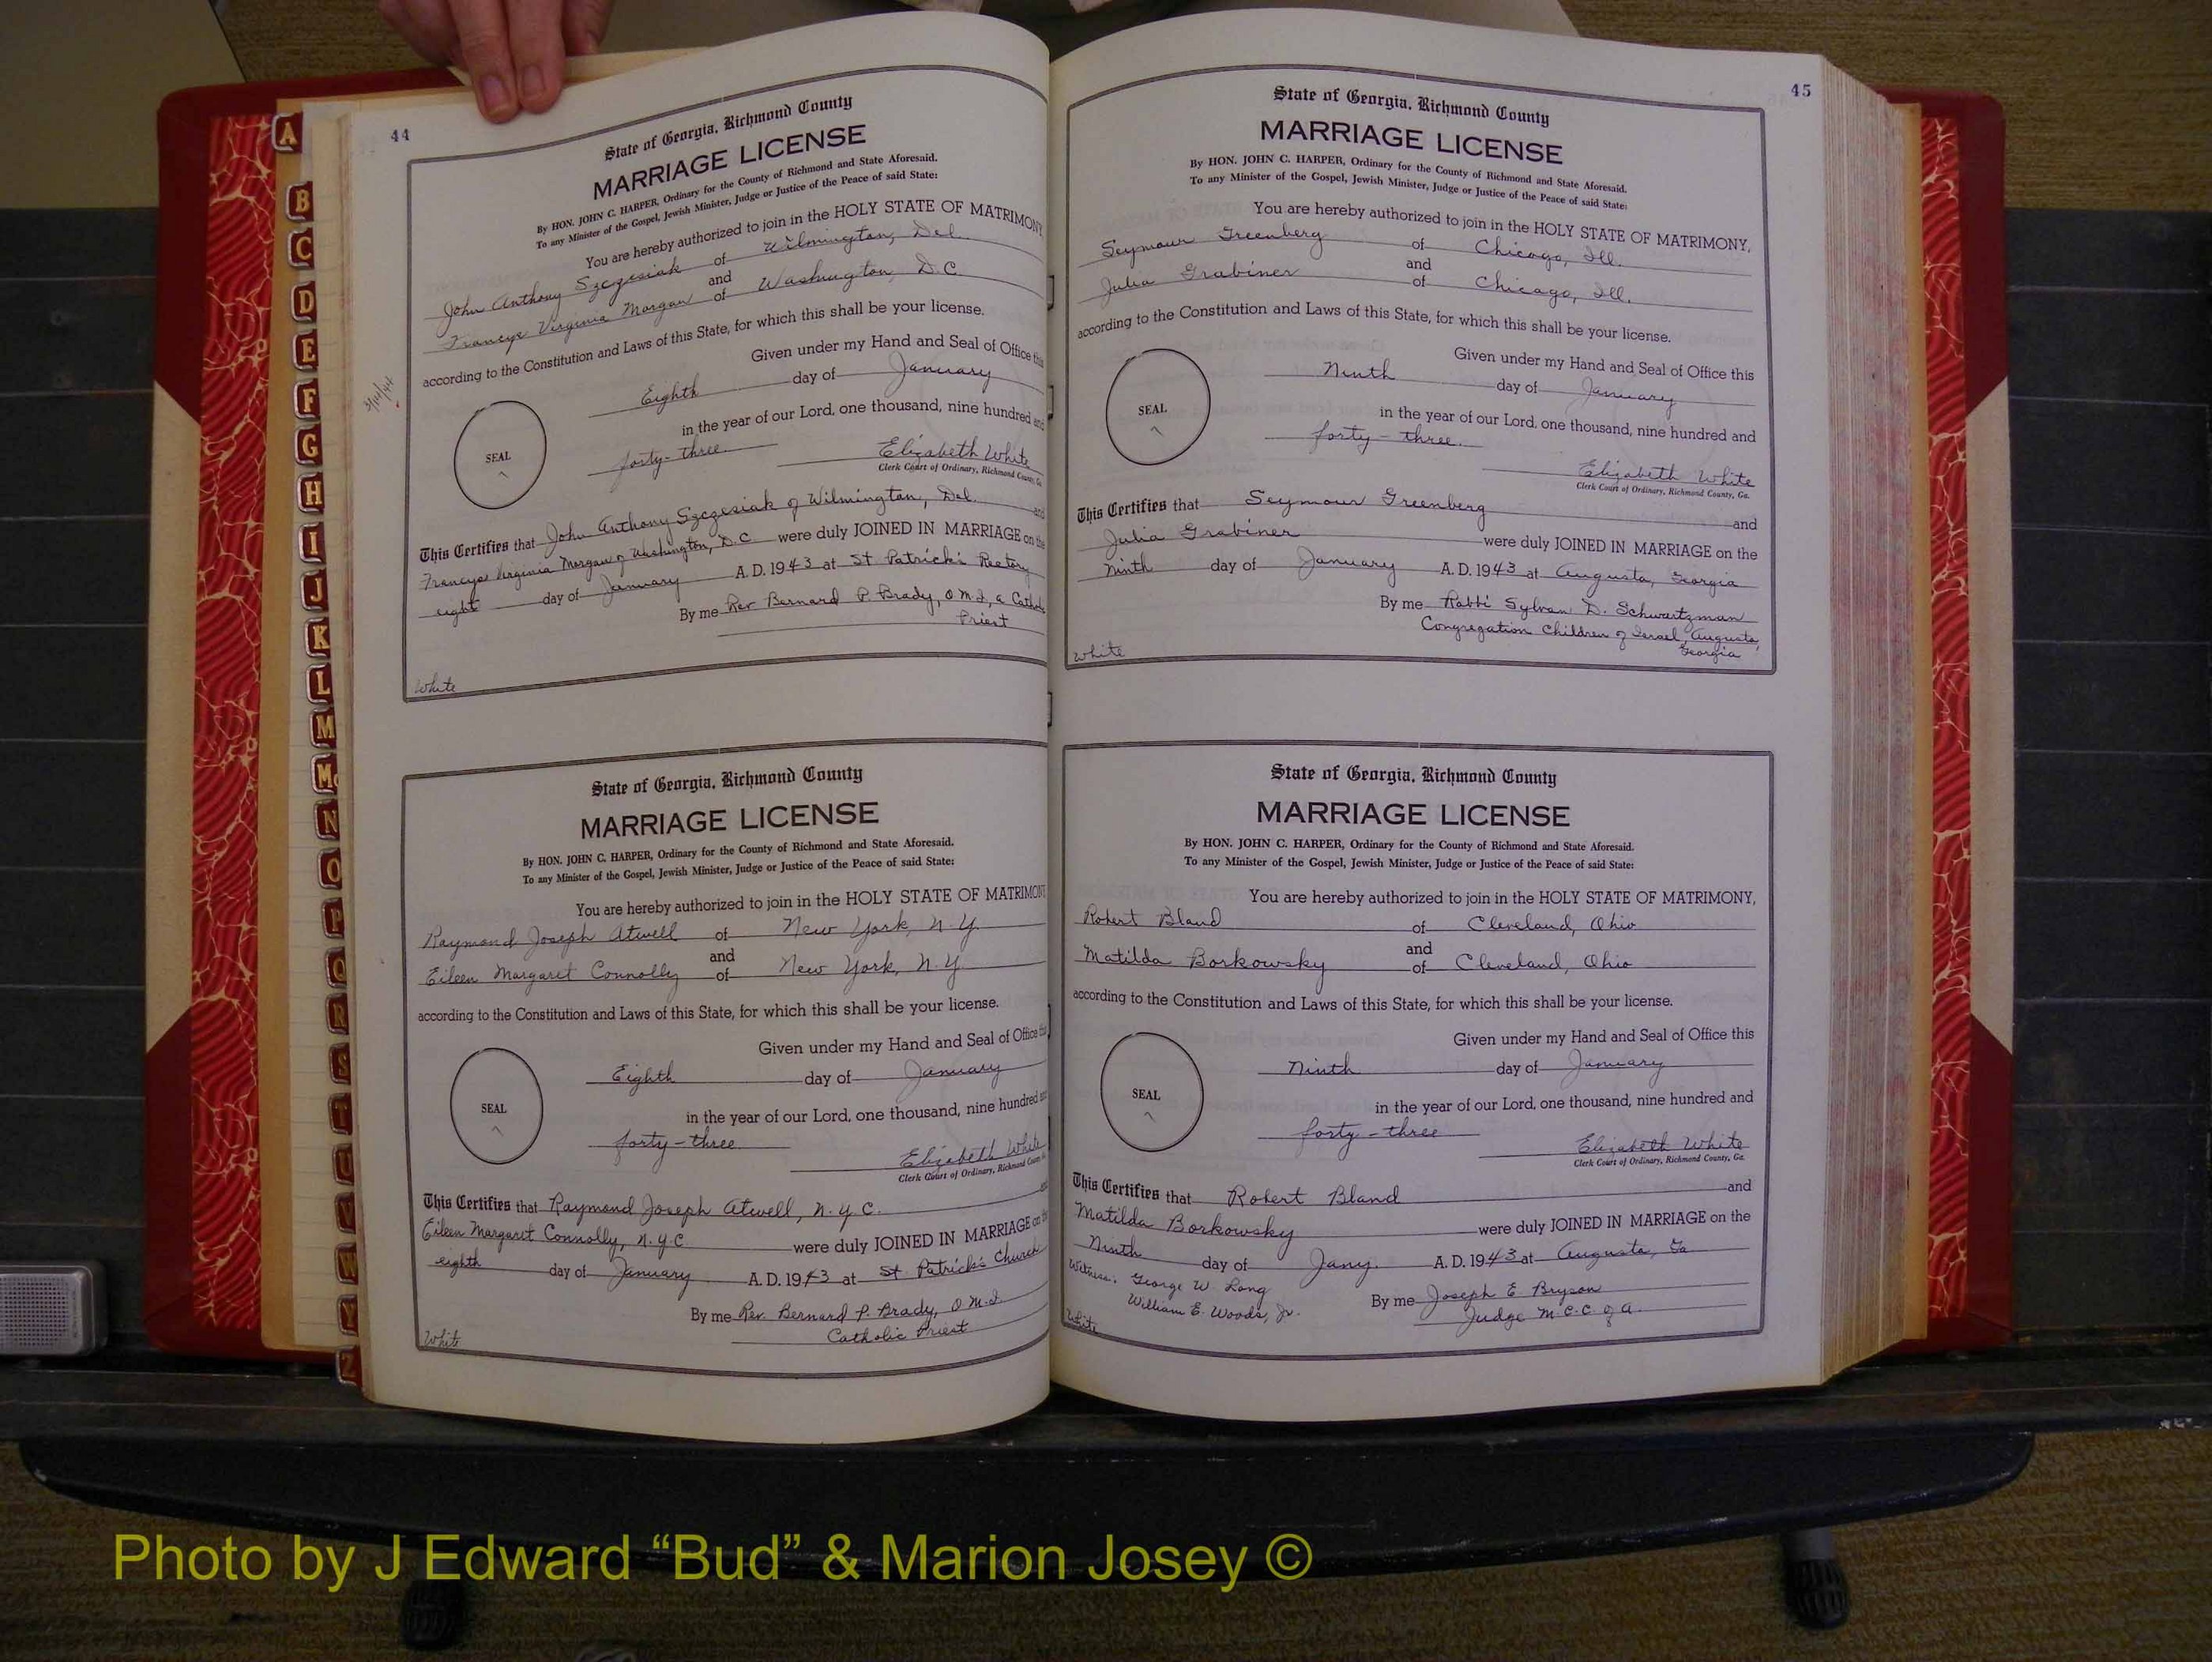 44
State of Georgia, Richmond County
MARRIAGE LICENSE
By HON. JOHN C. HARPER, Ordinary for the County of Richmond and State Aforesaid.
To any Minister of the Gospel, Jewish Minister, Judge or Justice of the Peace of said State:
You are hereby authorized to join in the HOLY STATE OF MATRIMONY
John Anthony Szczesiak of Wilmington, Del.
and
Francys Virginia Morgan of Washington, D.C.
according to the Constitution and Laws of this State, for which this shall be your license.
Given under my Hand and Seal of Office this
Eighth day of January
in the year of our Lord, one thousand, nine hundred and
forty-three
SEAL
Elizabeth White
Clerk Court of Ordinary, Richmond County, Ga.
This Certifies that John Anthony Szczesiak of Wilmington, Del. and
Francys Virginia Morgan of Washington, D.C were duly JOINED IN MARRIAGE on the
eight day of January A. D. 1943 at St Patrick's Rectory
By me Rev Bernard P. Brady, O M.I, a Catholic
Priest
White
3/14/44
State of Georgia, Richmond County
MARRIAGE LICENSE
By HON. JOHN C. HARPER, Ordinary for the County of Richmond and State Aforesaid.
To any Minister of the Gospel, Jewish Minister, Judge or Justice of the Peace of said State:
You are hereby authorized to join in the HOLY STATE OF MATRIMONY
Raymond Joseph Atwell of New York, N.Y.
and
Eileen Margaret Connolly of New York, N.Y.
according to the Constitution and Laws of this State, for which this shall be your license.
Given under my Hand and Seal of Office this
Eighth day of January
in the year of our Lord, one thousand, nine hundred and
forty-three
SEAL
Elizabeth White
Clerk Court of Ordinary, Richmond County
This Certifies that Raymond Joseph Atwell, N.Y.C. and
Eileen Margaret Connolly, N.Y.C were duly JOINED IN MARRIAGE on the
eighth day of January A. D. 1943 at St. Patrick's Church
By me Rev. Bernard P. Brady, O M.I.
Catholic Priest
White
45
State of Georgia, Richmond County
MARRIAGE LICENSE
By HON. JOHN C. HARPER, Ordinary for the County of Richmond and State Aforesaid.
To any Minister of the Gospel, Jewish Minister, Judge or Justice of the Peace of said State:
You are hereby authorized to join in the HOLY STATE OF MATRIMONY,
Seymour Greenberg of Chicago, Ill.
and
Julia Grabiner of Chicago, Ill.
according to the Constitution and Laws of this State, for which this shall be your license.
Given under my Hand and Seal of Office this
Ninth day of January
in the year of our Lord, one thousand, nine hundred and
forty-three.
SEAL
Elizabeth White
Clerk Court of Ordinary, Richmond County, Ga.
This Certifies that Seymour Greenberg and
Julia Grabiner were duly JOINED IN MARRIAGE on the
Ninth day of January A. D. 1943 at Augusta, Georgia
By me Rabbi Sylvan D. Schwartzman
Congregation Children of Israel, Augusta,
Georgia
White
State of Georgia, Richmond County
MARRIAGE LICENSE
By HON. JOHN C. HARPER, Ordinary for the County of Richmond and State Aforesaid.
To any Minister of the Gospel, Jewish Minister, Judge or Justice of the Peace of said State:
You are hereby authorized to join in the HOLY STATE OF MATRIMONY,
Robert Bland of Cleveland, Ohio
and
Matilda Borkowsky of Cleveland, Ohio
according to the Constitution and Laws of this State, for which this shall be your license.
Given under my Hand and Seal of Office this
Ninth day of January
in the year of our Lord, one thousand, nine hundred and
forty-three
SEAL
Elizabeth White
Clerk Court of Ordinary, Richmond County, Ga.
This Certifies that Robert Bland and
Matilda Borkowsky were duly JOINED IN MARRIAGE on the
Ninth day of Jany. A. D. 1943 at Augusta, Ga
Witness: George W. Long
William E. Woods, Jr.
By me Joseph E Bryson
Judge M.C.C. of A.
White
A
B
C
D
E
F
G
H
I
J
K
L
M
Mc
N
O
P
Q
R
S
T
U
V
W
Y
Z
Photo by J Edward “Bud” & Marion Josey ©